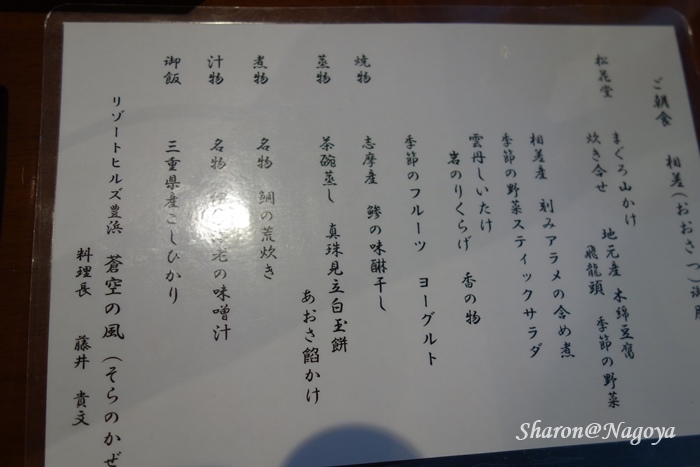 ご朝食 相差(おおさつ)御膳
松花堂 まぐろ山かけ 地元産 木綿豆腐
炊き合せ 飛龍頭 季節の野菜
相差産 刻みアラメの含め煮
季節の野菜スティックサラダ
雲丹しいたけ
岩のりくらげ 香の物
季節のフルーツ ヨーグルト
焼物 志摩産 鯵の味醂干し
蒸物 茶碗蒸し 真珠見立白玉餅
あおさ餡かけ
煮物 名物 鯛の荒炊き
汁物 名物 老の味噌汁
御飯 三重県産こしひかり
リゾートヒルズ豊浜 蒼空の風(そらのかぜ
料理長 藤井 貴文
Sharon@Nagoya